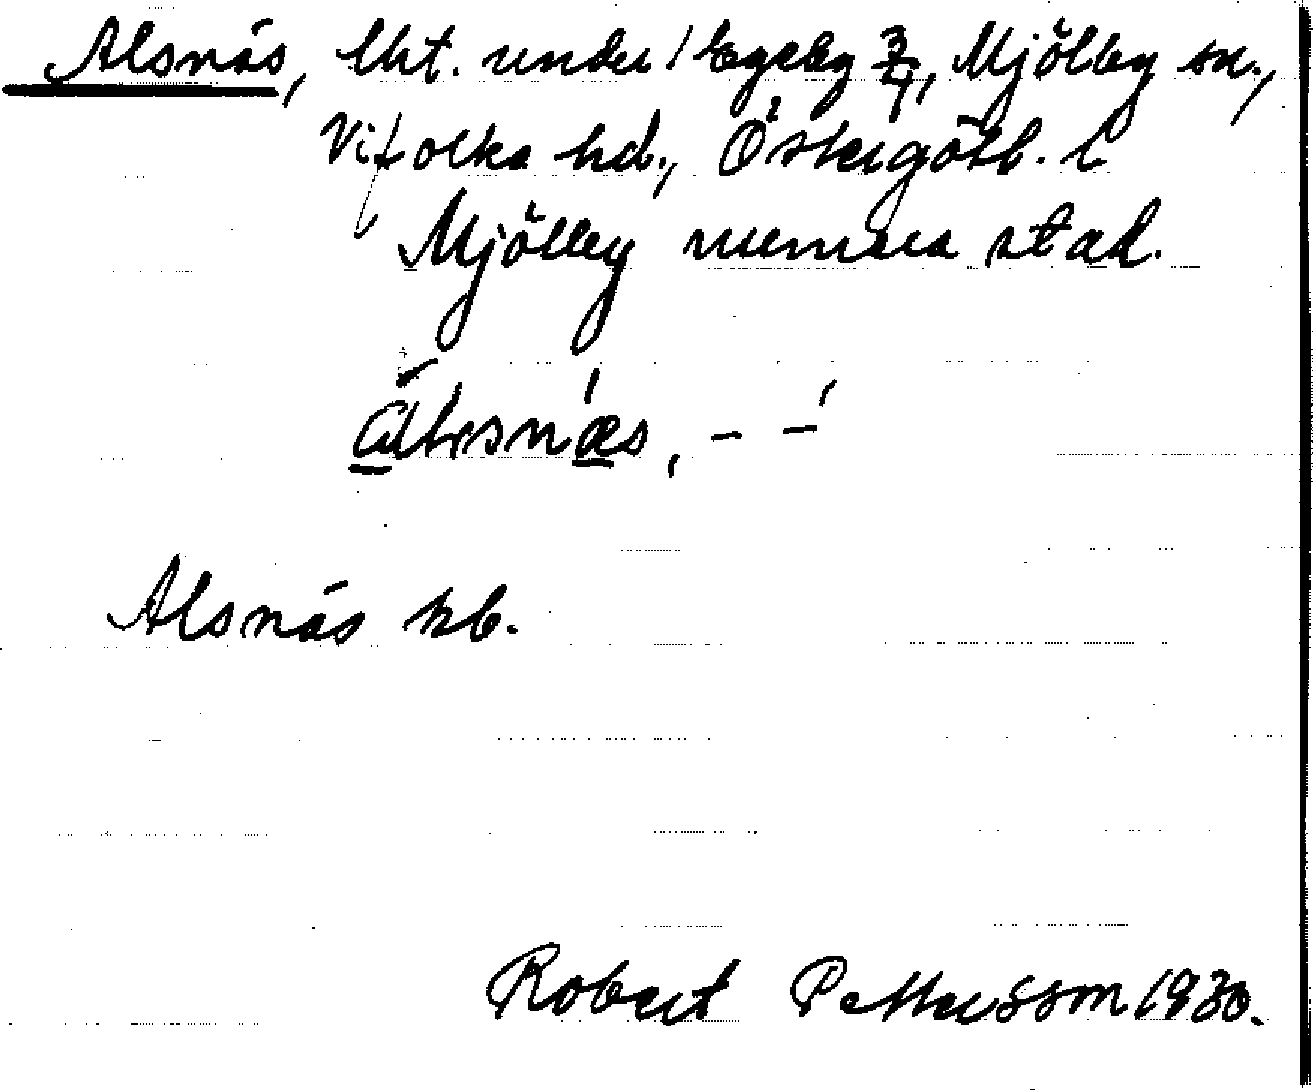 Alsnäs, lht. under Egeby 3/4, Mjölby sn.,
Vifolka hd., Östergötl. l
Mjölby numera stad.
Alsnäs kb.
Robert Pettersson 1930.